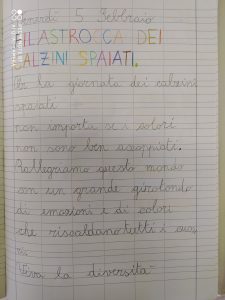 Venerdì 5 febbraio
FILASTROCCA DEI
CALZINI SPAIATI.
Per la giornata dei calzini
spaiati
non importa se i colori
non sono ben accoppiati.
Rallegriamo questo mondo
con un grande girotondo
di emozioni e di colori
che riscaldano tutti i cuo
ri
Viva la diversità